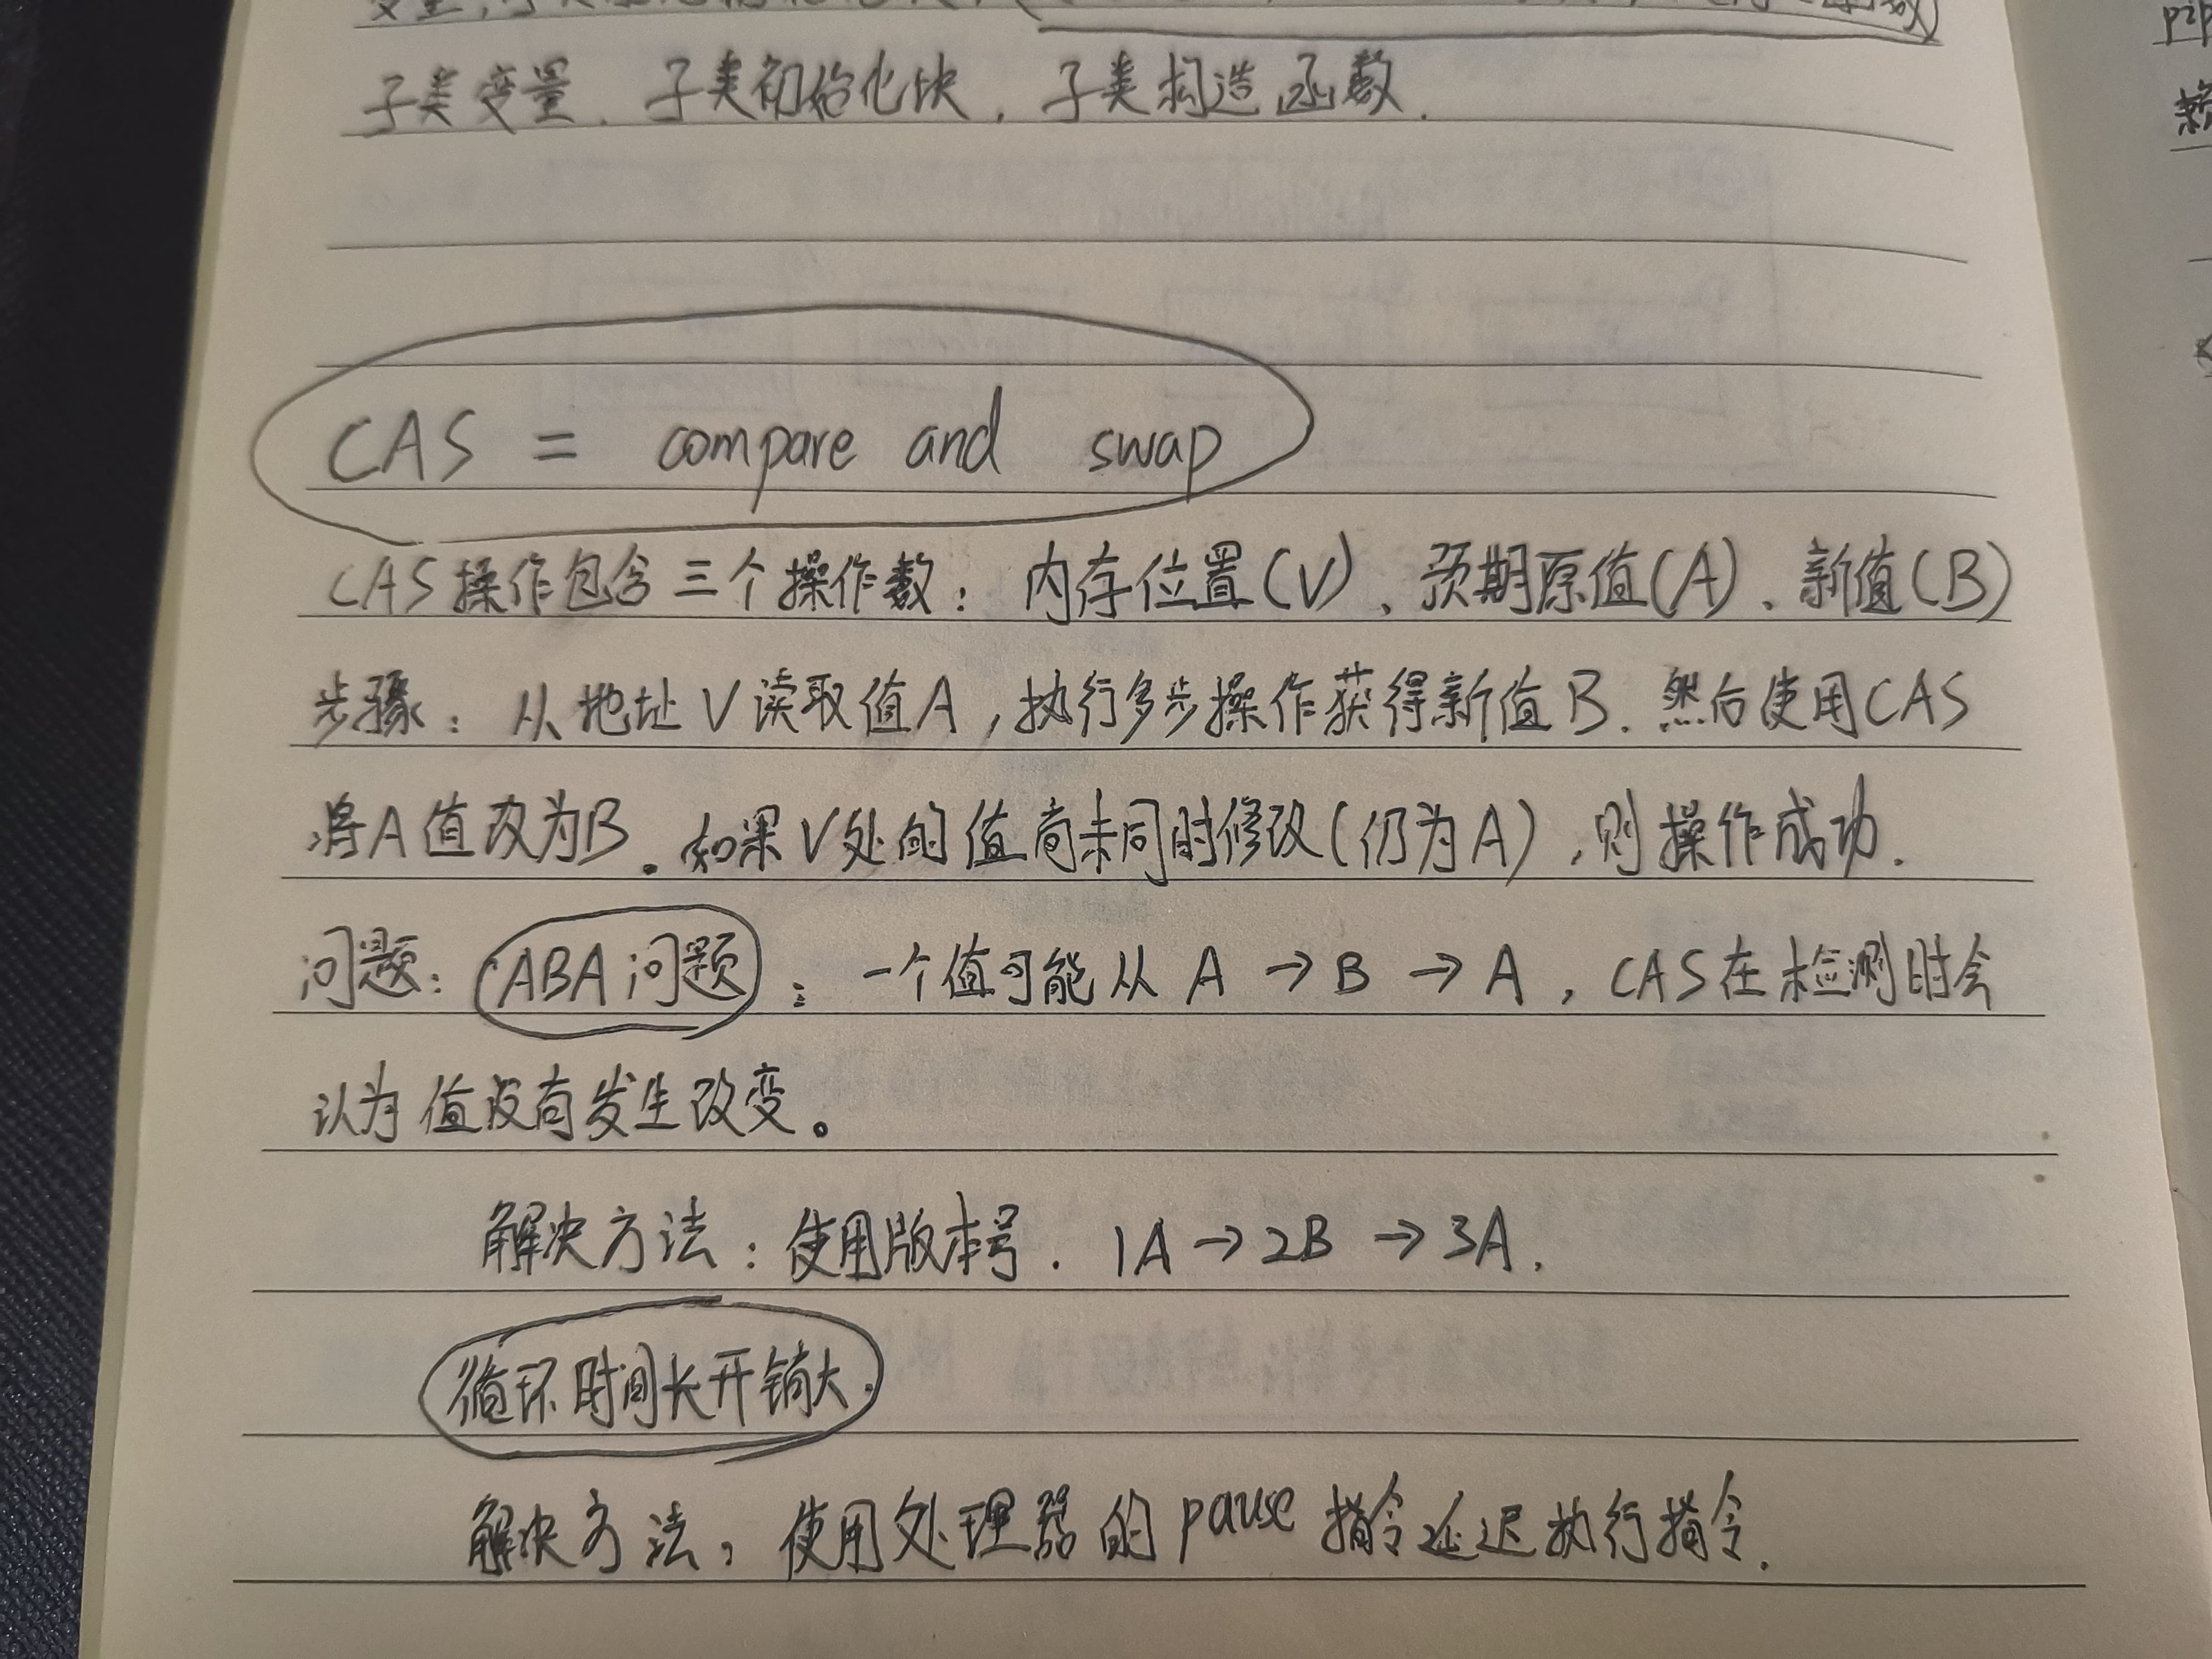 子类变量．子类初始化块，子类构造函数．
CAS = compare and swap
CAS操作包含三个操作数：内存位置(V)、预期原值(A)、新值(B)
步骤：从地址V读取值A，执行多步操作获得新值B．然后使用CAS
将A值改为B。如果V处的值尚未同时修改(仍为A)，则操作成功．
问题：ABA问题：一个值可能从 A → B → A，CAS在检测时会
认为值没有发生改变。
解决方法：使用版本号．1A → 2B → 3A．
循环时间长开销大．
解决方法：使用处理器的pause指令延迟执行指令．